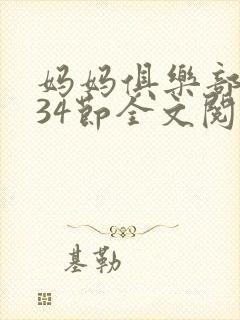 妈妈俱樂部
34節全文閱
基勒